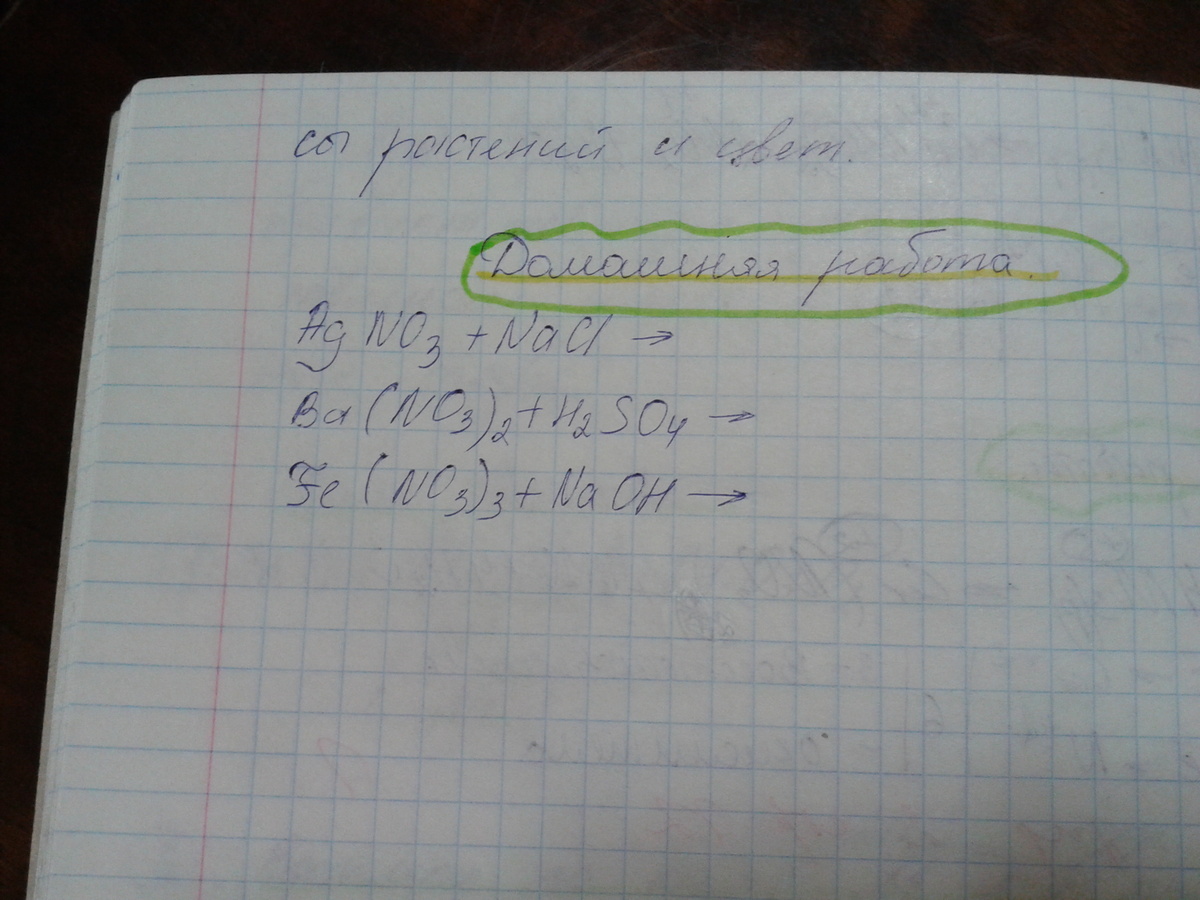 сы растений и цвет.
Домашняя работа.
AgNO₃ + NaCl →
Ba(NO₃)₂ + H₂SO₄ →
Fe(NO₃)₃ + NaOH →